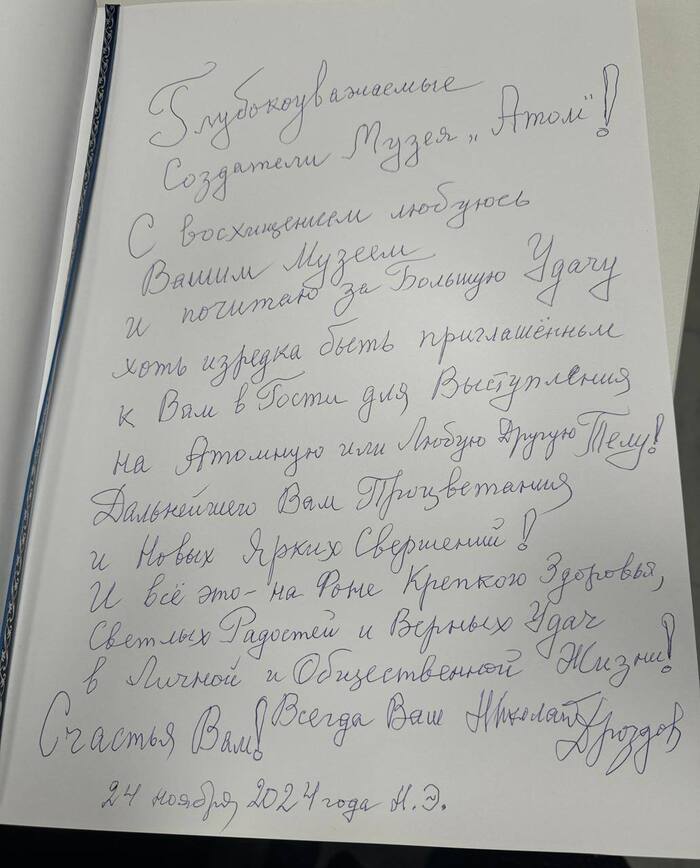 Глубокоуважаемые
Создатели Музея „Атом"!
С восхищением любуюсь
Вашим Музеем
и почитаю за Большую Удачу
хоть изредка быть приглашённым
к Вам в Гости для Выступления
на Атомную или Любую Другую Тему!
Дальнейшего Вам Процветания
и Новых Ярких Свершений!
И всё это - на Фоне Крепкого Здоровья,
Светлых Радостей и Верных Удач
в Личной и Общественной Жизни!
Счастья Вам! Всегда Ваш Николай Дроздов
24 ноября, 2024 года Н.Э.